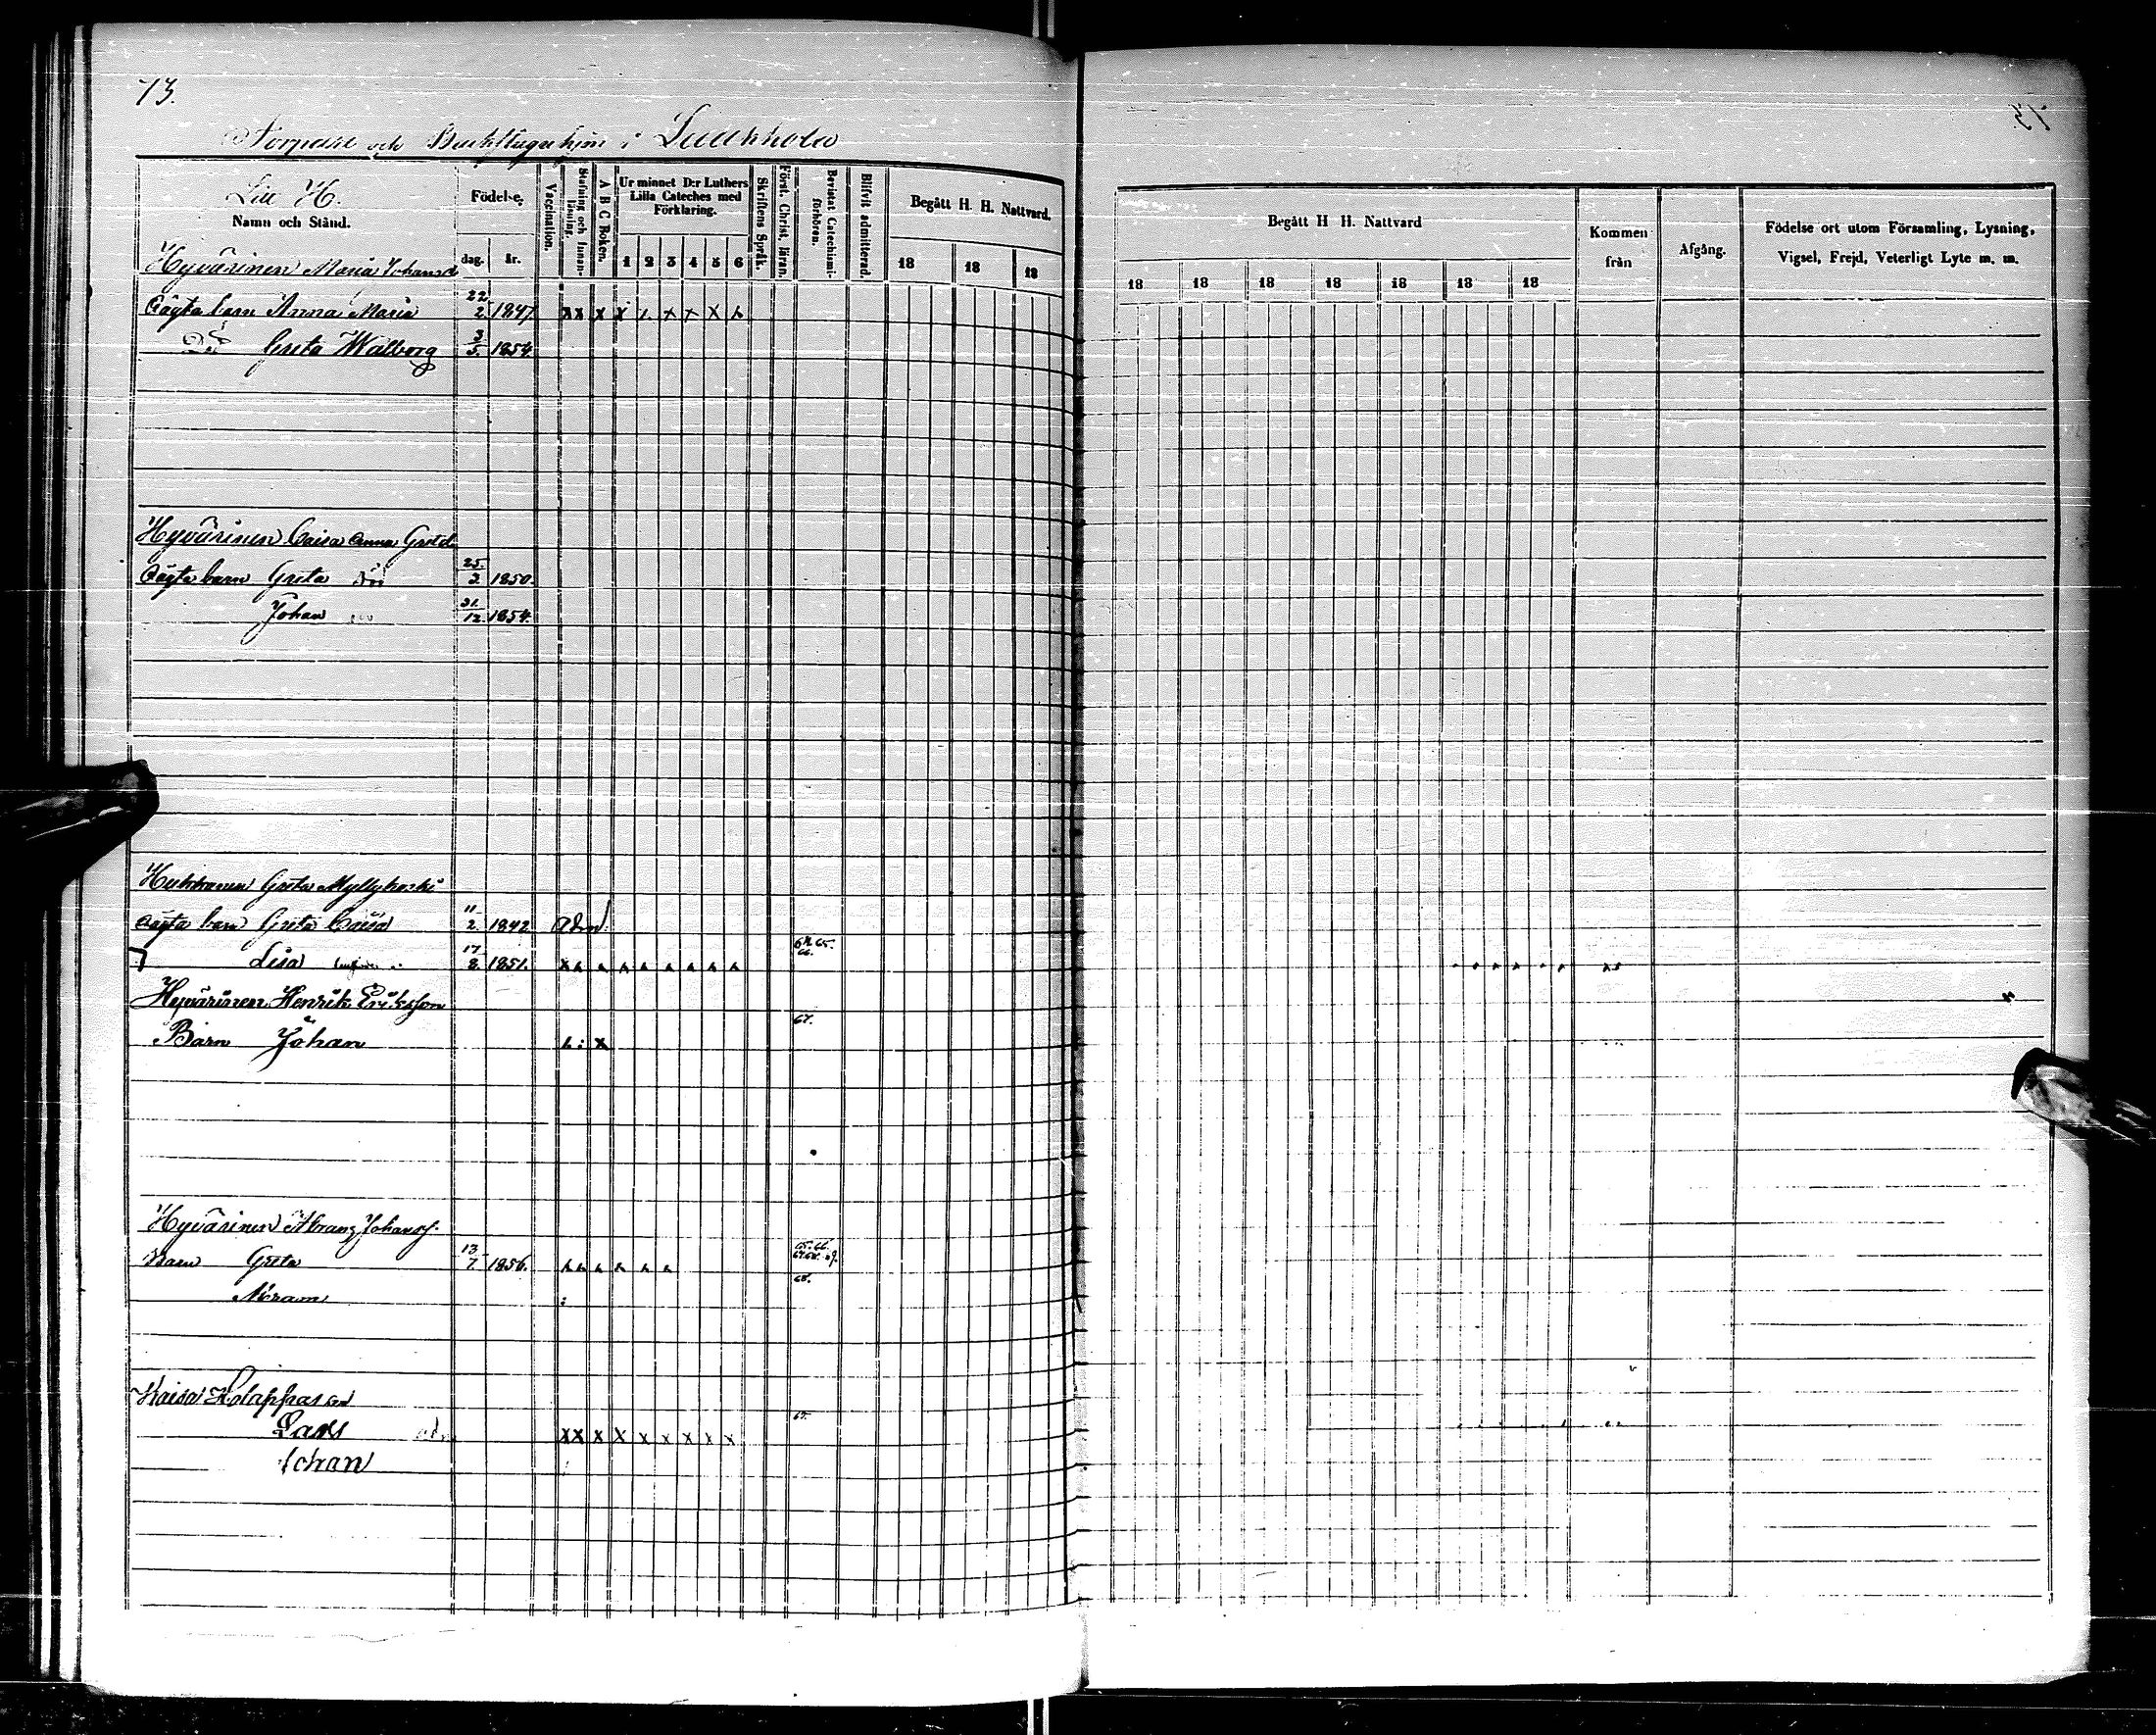 73.
73.
Torpare och Backstuguhjon i Luukkola
Litt H.
Namn och Stånd.
Födelse,
dag. år.
Vaccination.
Stafning och Innanläsning.
A B C Boken.
Ur minnet D:r Luthers Lilla Cateches med Förklaring.
1 2 3 4 5 6
Skriftens Språk.
Först. Christ. läran.
Bevistat Catechismiförhören.
Blifvit admitterad.
Begått H. H. Nattvard.
18 18 18
Begått H H. Nattvard
18 18 18 18 18 18 18
Kommen från
Afgång.
Födelse ort utom Församling, Lysning,
Vigsel, Frejd, Veterligt Lyte m. m.
Hyvärinen Maria Johansd
Oägta barn Anna Maria 22/2 1847. x x x x x x x x
Greta Walborg 3/5. 1854.
Hyvärinen Caisa Anna Gretd
Oägta barn Greta 25./2 1850.
Johan 31./12. 1854.
Greta Myllykoski
Oägta barn Greta Caisa 11/2. 1842 Adm.
Lisa 17/8. 1851. 64 65. 66.
Hyvärinen Henrik Eriksson
Barn Johan 67.
Hyvärinen Johanss.
Barn Greta 13/7. 1856. 65. 66.
Abram 68.
Kaisa
Lars x x x x x x x x x
Johan